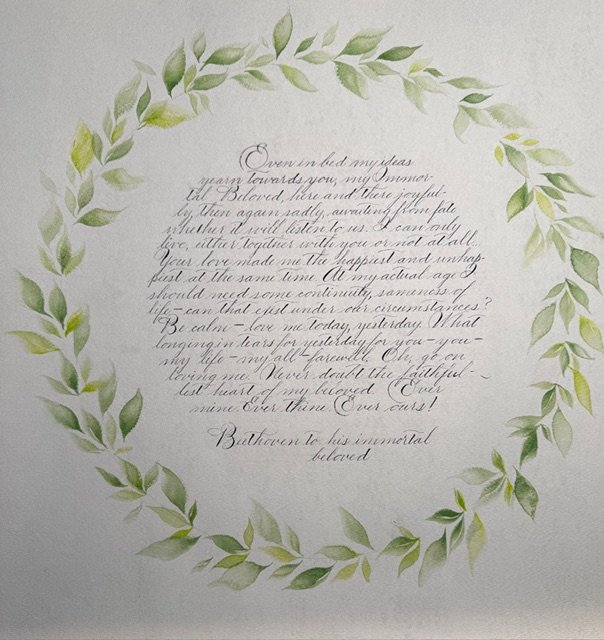 Even in bed my ideas
yearn towards you, my Immor-
tal Beloved, here and there joyful-
ly, then again sadly, awaiting from fate
whether it will listen to us. I can only
live, either togther with you or not at all.
Your love made me the happiest and unhap-
piest at the same time. At my actual age I
should need some continuity, sameness of
life – can that exist under our circumstances?
Be calm – love me today, yesterday. What
longing in tears for yesterday for you – you –
my life – my all – farewell. Oh, go on
loving me. Never doubt the faithful-
lest heart of my beloved. Ever
mine. Ever thine. Ever ours!
Buthoven to his immortal
beloved